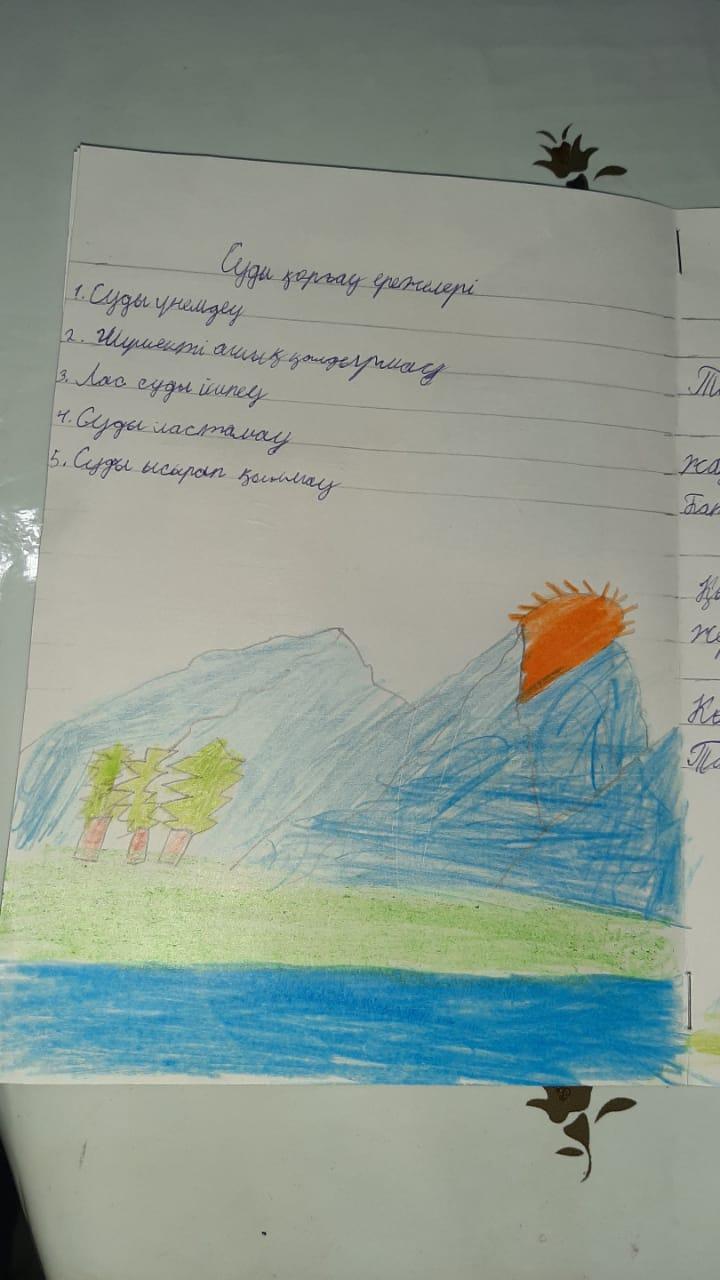 Суды қорғау ережелері
1. Суды үнемдеу
2. Шүмекті ашық қалдырмау
3. Лас суды ішпеу
4. Суды ластамау
5. Суды ысырап қылмау